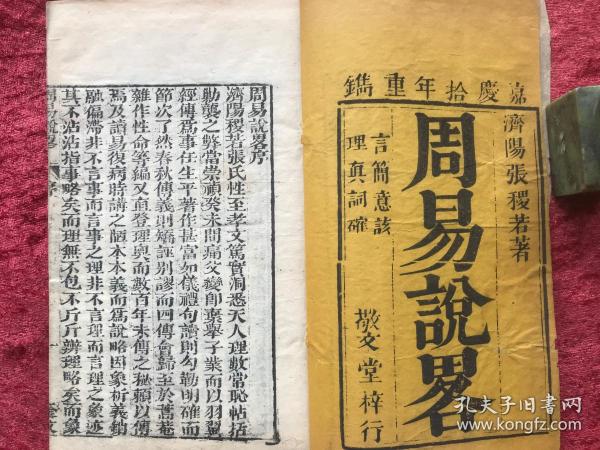 嘉慶拾年重鐫
濟陽張稷若著
周易說畧
言簡意該
理真詞確
敬文堂梓行
周易說畧序
濟陽稷若張氏性至孝文篤實洞悉天人理數常恥帖括
勦襲之弊當崇禎癸未間痛父變即棄舉子業而以羽翼
經傳爲事任生平著作甚富如儀禮句讀則勾勒明確而
節次了然春秋傳義則矯誣別謬而四傳會歸至於蓍菴
雜作性命等編又負登理奧而數百年未傳之秘賴以傳
焉及讀易復病時講之酒本本義而爲說略因象析義銷
融偏滯非不言事而言事之理非不言理而言理之象迹
其不沾沾指事略矣而理無不包不斤斤辨理略矣而象
周易說畧
序
孔夫子旧书网
www.kongfz.com